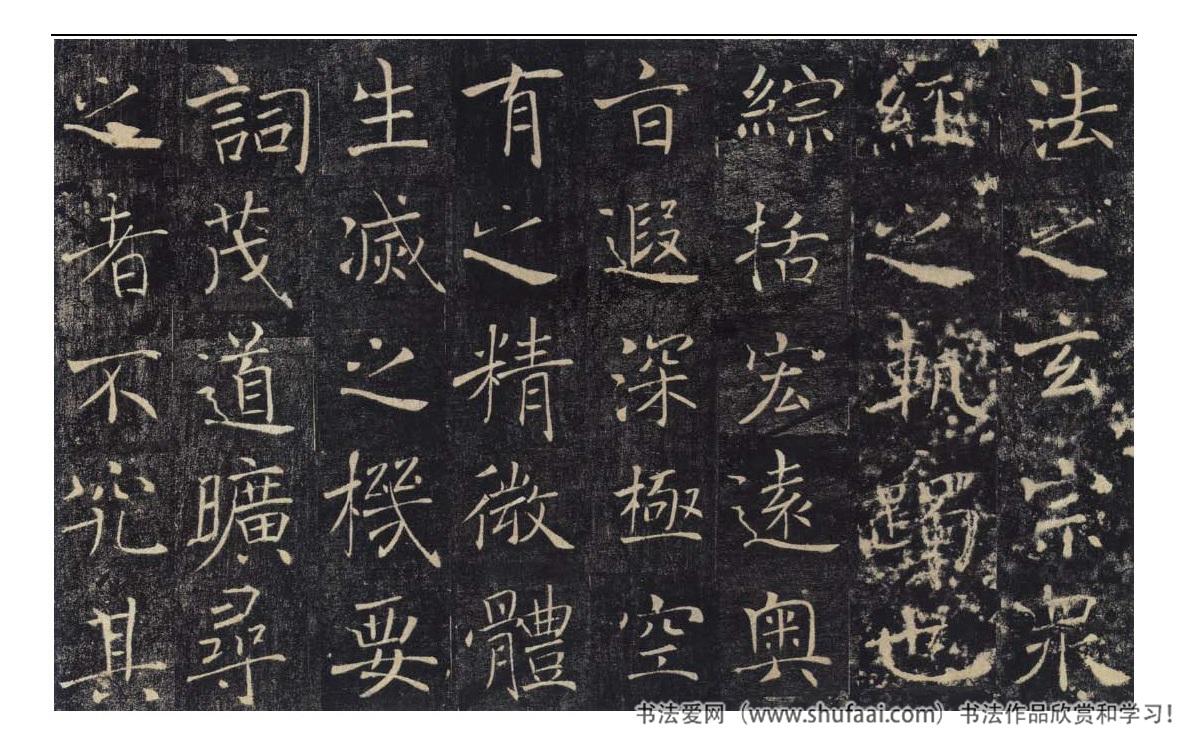 法之玄宗衆
經之軌躅也
綜括宏遠奧
旨遐深極空
有之精微體
生滅之機要
詞茂道曠尋
之者不究其
书法爱网（www.shufaai.com）书法作品欣赏和学习！